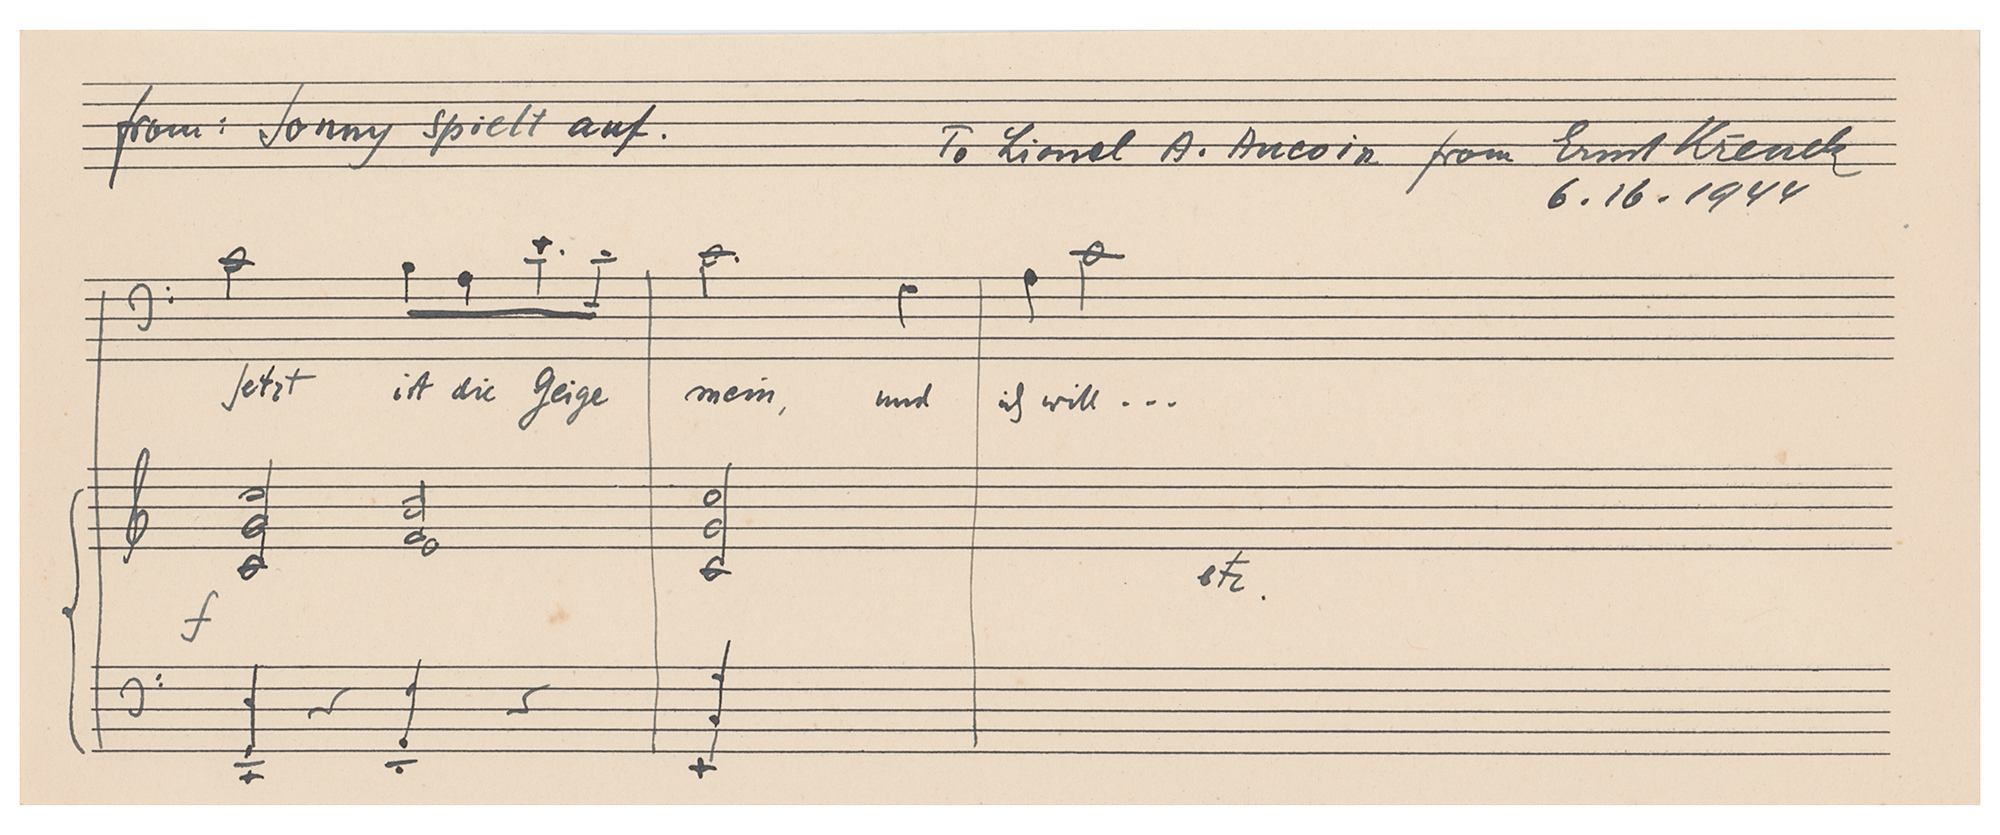 from: Jonny spielt auf.
To Lionel A. Aucoin from Ernst Křenek
6.16.1944
Jetzt ist die Geige mein, und ich will ...
f
etc.